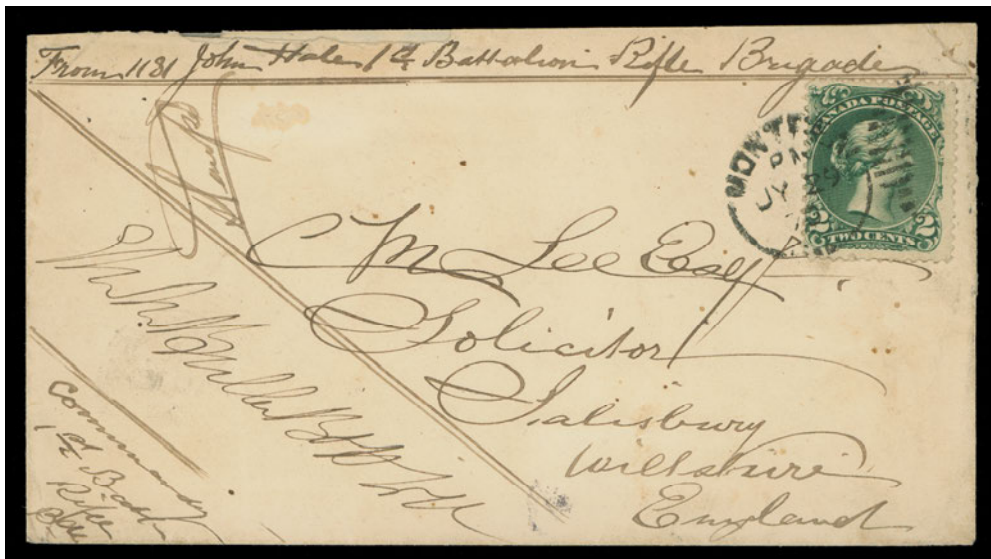 From 1131 John Hales 1st Battalion Rifle Brigade
CANADA POSTAGE
2 TWO CENTS 2
MONTR
PM
JY 29
C M Lee Esq
Solicitor
Salisbury
Wiltshire
England
Commanding
1st Batt
Rifle